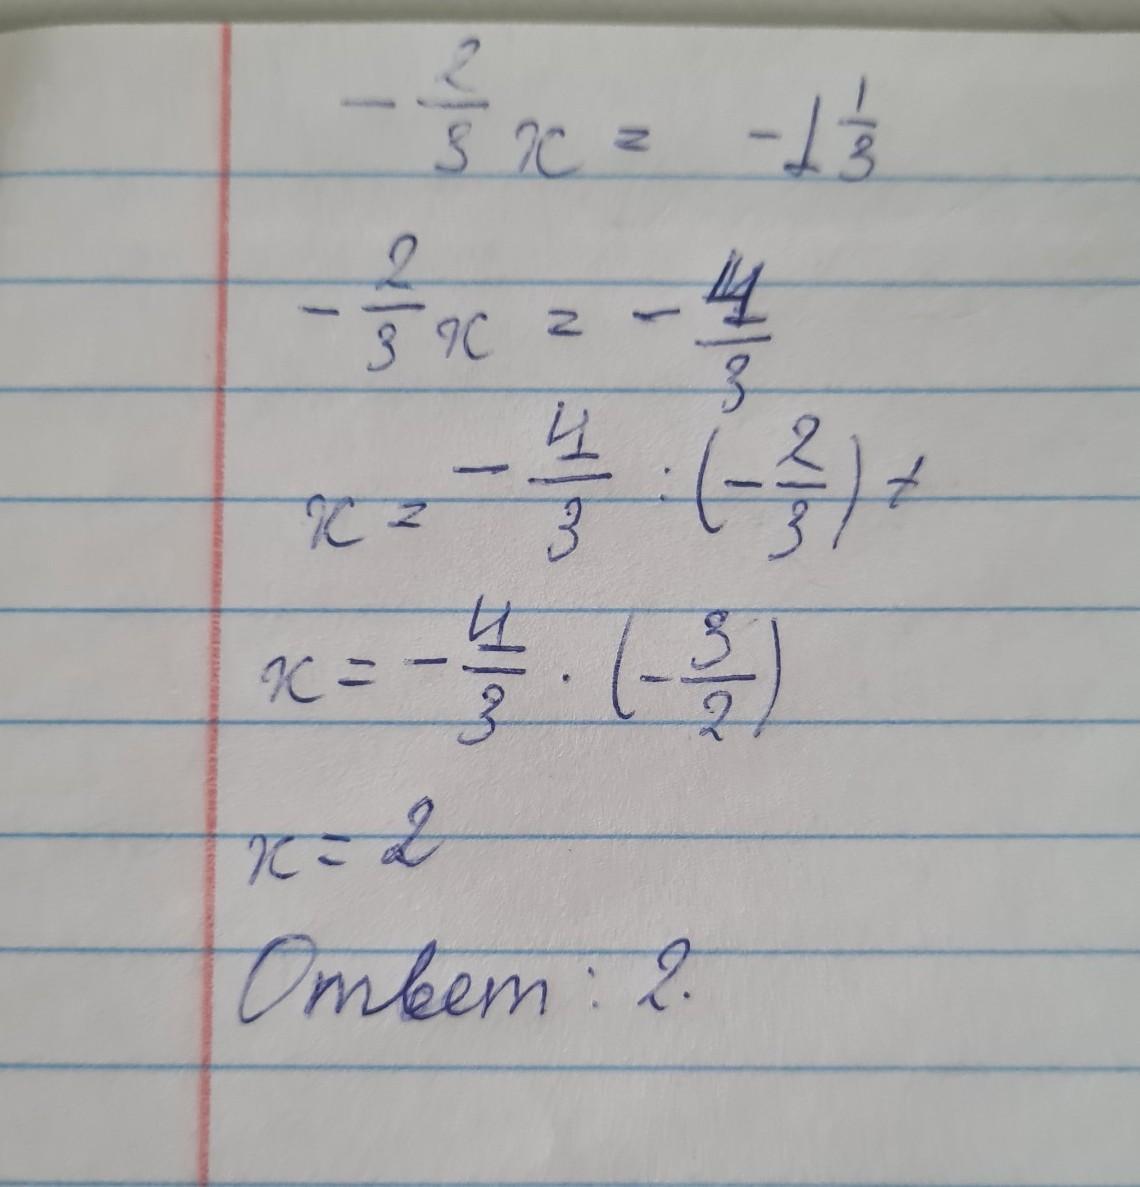 -2/3 x = -1 1/3
-2/3 x = -4/3
x = -4/3 : (-2/3) +
x = -4/3 · (-3/2)
x = 2
Ответ: 2.